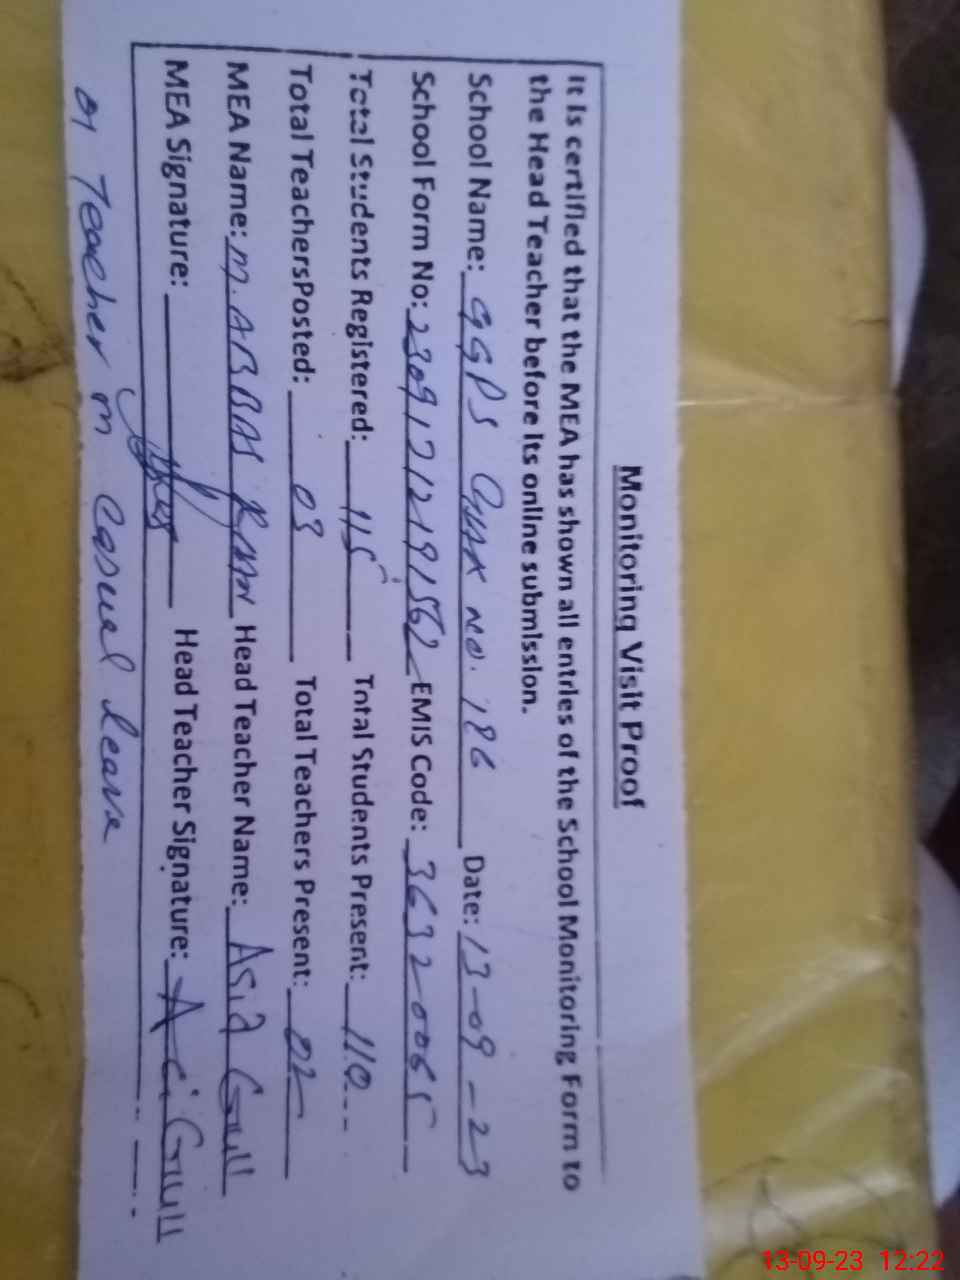 Monitoring Visit Proof
It is certified that the MEA has shown all entries of the School Monitoring Form to
the Head Teacher before its online submission.
School Name: GGPS Chak No. 186 Date: 13-09-23
School Form No: 23091212191562 EMIS Code: 36320065
Total Students Registered: 115 Total Students Present: 110
Total TeachersPosted: 03 Total Teachers Present: 02
MEA Name: M. ABBAS KHAN Head Teacher Name: Asia Gull
MEA Signature: Head Teacher Signature: A. Gull
01 Teacher on Casual leave
13-09-23 12:22